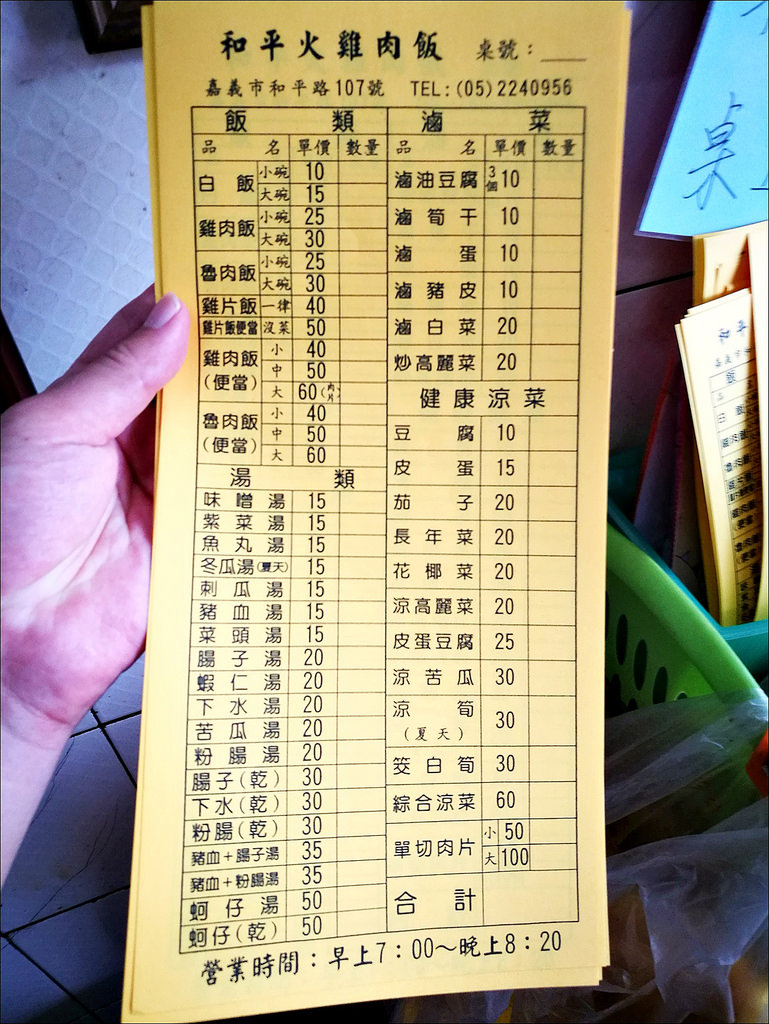 和平火雞肉飯 桌號：
嘉義市和平路107號 TEL:(05)2240956
飯類
品名 單價 數量
白飯 小碗 10
大碗 15
雞肉飯 小碗 25
大碗 30
魯肉飯 小碗 25
大碗 30
雞片飯 一律 40
雞片飯便當 沒菜 50
雞肉飯(便當) 小 40
中 50
大 60(肉片)
魯肉飯(便當) 小 40
中 50
大 60
湯類
味噌湯 15
紫菜湯 15
魚丸湯 15
冬瓜湯(夏天) 15
刺瓜湯 15
豬血湯 15
菜頭湯 15
腸子湯 20
蝦仁湯 20
下水湯 20
苦瓜湯 20
粉腸湯 20
腸子(乾) 30
下水(乾) 30
粉腸(乾) 30
豬血+腸子湯 35
豬血+粉腸湯 35
蚵仔湯 50
蚵仔(乾) 50
滷菜
品名 單價 數量
滷油豆腐 3個10
滷筍干 10
滷蛋 10
滷豬皮 10
滷白菜 20
炒高麗菜 20
健康涼菜
豆腐 10
皮蛋 15
茄子 20
長年菜 20
花椰菜 20
涼高麗菜 20
皮蛋豆腐 25
涼苦瓜 30
涼筍(夏天) 30
筊白筍 30
綜合涼菜 60
單切肉片 小 50
大 100
合計
營業時間：早上7：00～晚上8：20
桌